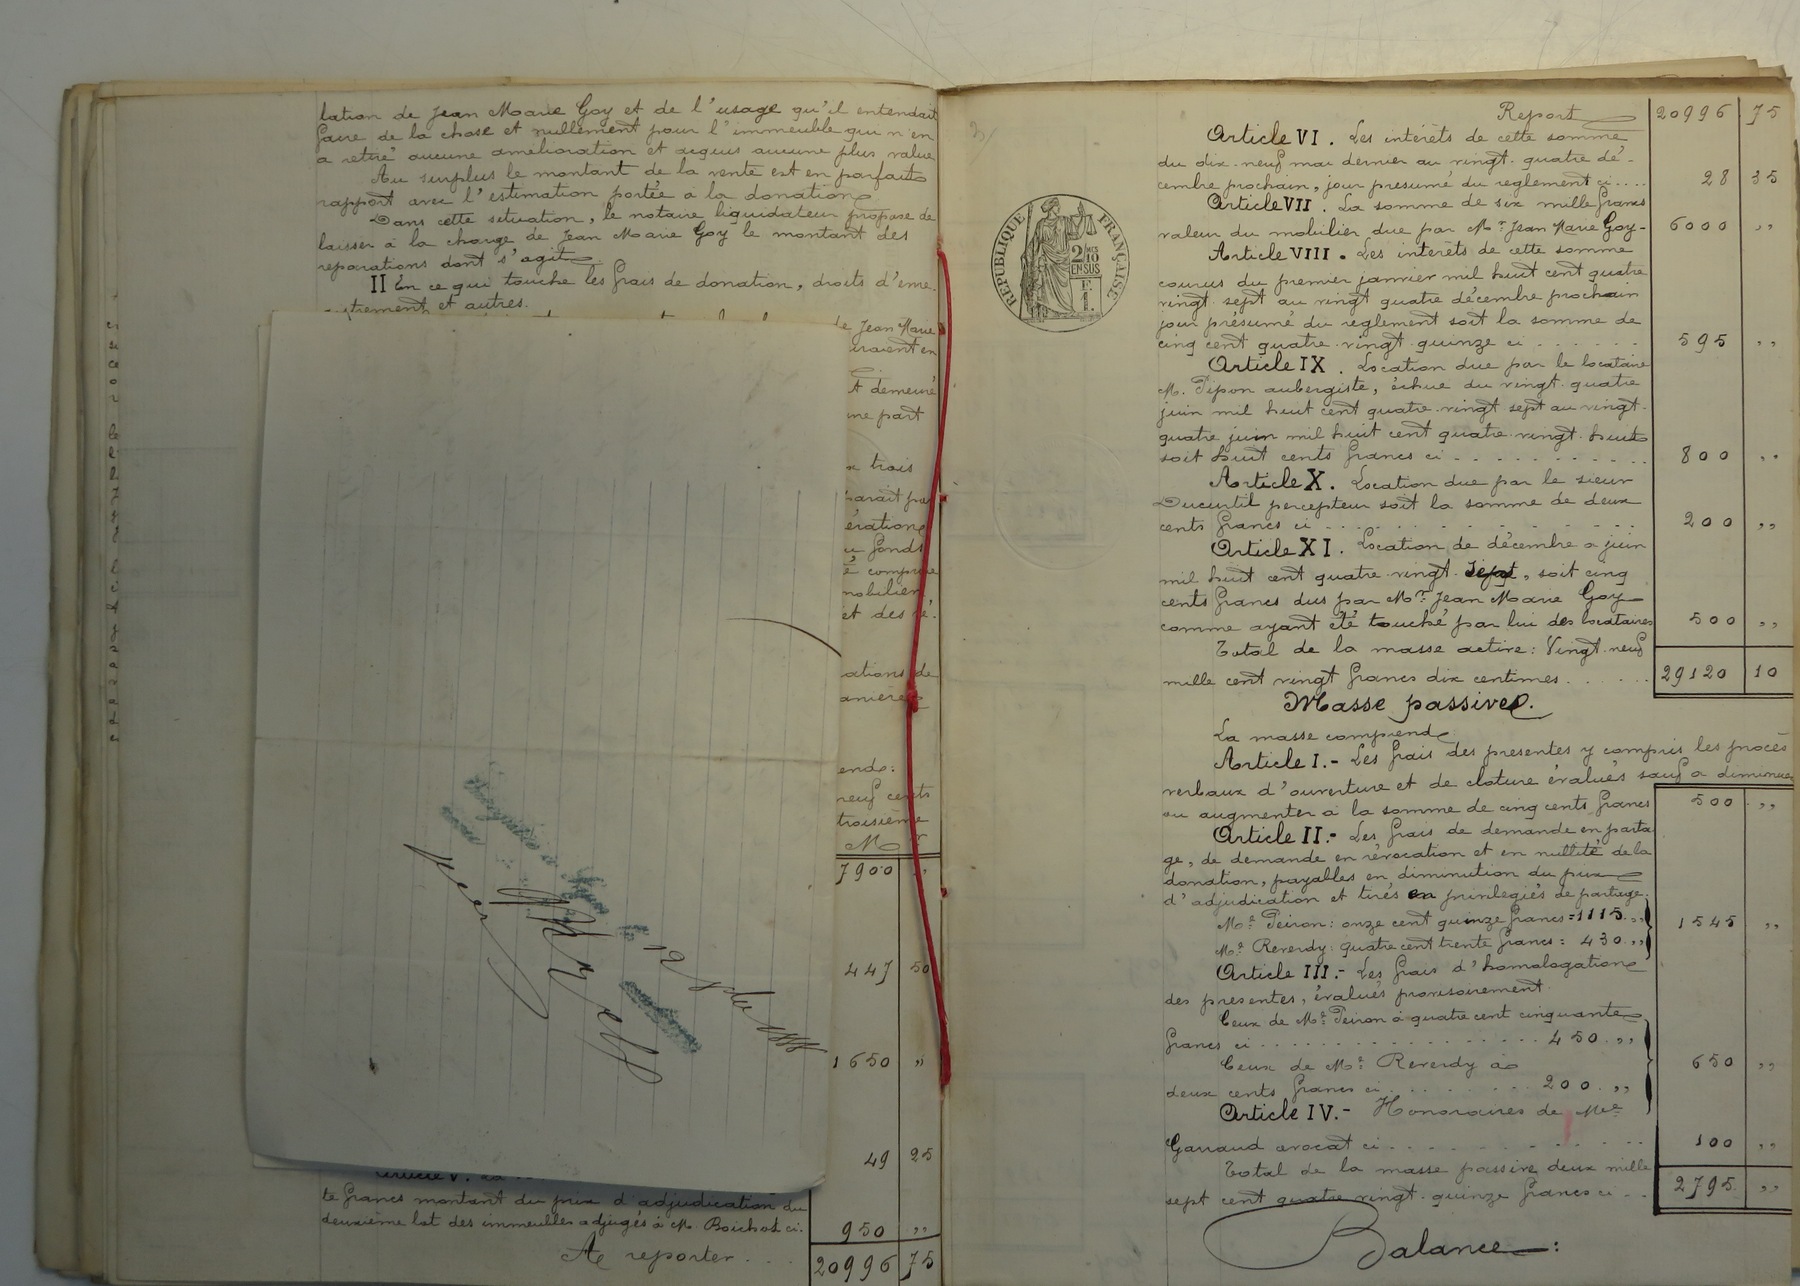 tation de Jean Marie Goy et de l'usage qu'il entendait
faire de la chose et nullement pour l'immeuble qui n'en
a retiré aucune amélioration et acquis aucune plus value
Au surplus le montant de la vente est en parfait
rapport avec l'estimation portée à la donation
Dans cette situation, le notaire liquidateur propose de
laisser à la charge de Jean Marie Goy le montant des
reparations dont s'agit
II En ce qui touche les frais de donation, droits d'enre-
gistrement et autres.
de Jean Marie
uraient en
et demeuré
une part
x trois
parait pas
érations
u fonds
é comprise
mobilier
et des ré-
ations de
anière
ende:
neuf cents
troisième
7900 "
447 50
1650 "
49 25
Article V.
te francs montant du prix d'adjudication du
deuxième lot des immeubles adjugés à M. Boichot ci.
950 "
A reporter . . .
20996 75
le 12 Xbre 1888
Report 20996 75
RÉPUBLIQUE FRANÇAISE
2/10 EN SUS
Article VI. Les intérêts de cette somme
du dix-neuf mai dernier au vingt-quatre dé-
cembre prochain, jour presumé du reglement ci.... 28 35
Article VII. La somme de six mille francs
valeur du mobilier due par Mr. Jean Marie Goy- 6000 "
Article VIII. Les intérêts de cette somme
courus du premier janvier mil huit cent quatre
vingt-sept au vingt quatre décembre prochain
jour présumé du reglement soit la somme de
cinq cent quatre-vingt-quinze ci . . . . . . 595 "
Article IX. Location due par le locataire
M. Pipon aubergiste, échue du vingt-quatre
juin mil huit cent quatre-vingt sept au vingt-
quatre juin mil huit cent quatre-vingt-huit
soit huit cents francs ci . . . . . . . . . 800 "
Article X. Location due par le sieur
Ducurtil percepteur soit la somme de deux
cents francs ci . . . . . . . . . . . . 200 "
Article XI. Location de décembre a juin
mil huit cent quatre-vingt sept, soit cinq
cents francs dus par Mr. Jean Marie Goy
comme ayant été touché par lui des locataires 500 "
Total de la masse active: Vingt-neuf
mille cent vingt francs dix centimes . . . . . 29120 10
Masse passive.
La masse comprend
Article I.- Les frais des presentes y compris les procès
verbaux d'ouverture et de cloture évalués sauf a diminuer
ou augmenter à la somme de cinq cents francs 500 "
Article II.- Les frais de demande en parta-
ge, de demande en révocation et en nullité de la
donation, payables en diminution du prix
d'adjudication et tirés en privilegiés de partage.
Me. Peiron: onze cent quinze francs = 1115. "
1545 "
Me. Reverdy: quatre cent trente francs = 430. "
Article III.- Les frais d'homologation
des presentes, évalués provisoirement.
Ceux de Me. Peiron à quatre cent cinquante
francs ci . . . . . . . . . . . . . 450. "
Ceux de Me. Reverdy à 650 "
deux cents francs ci . . . . . . . 200. "
Article IV.- Honoraires de Me
Garraud avocat ci . . . . . . . . . . . 100 "
Total de la masse passive deux mille
sept cent quatre vingt-quinze francs ci . . 2795 "
Balance :